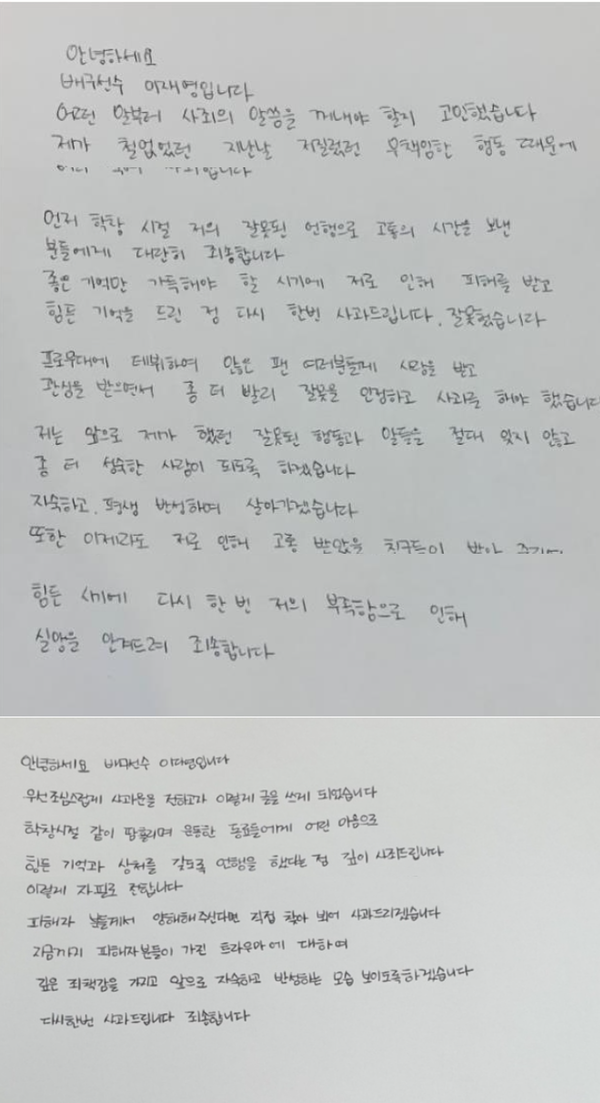 안녕하세요
배구선수 이재영입니다
어떤 말부터 사죄의 말씀을 꺼내야 할지 고민했습니다
제가 철없었던 지난날 저질렀던 무책임한 행동 때문에
먼저 학창 시절 저의 잘못된 언행으로 고통의 시간을 보낸
분들에게 대단히 죄송합니다
좋은 기억만 가득해야 할 시기에 저로 인해 피해를 받고
힘든 기억을 드린 점 다시 한번 사과드립니다. 잘못했습니다
프로무대에 데뷔하여 많은 팬 여러분들께 사랑을 받고
관심을 받으면서 좀 더 빨리 잘못을 인정하고 사과를 해야 했습니다
저는 앞으로 제가 했던 잘못된 행동과 말들을 절대 잊지 않고
좀 더 성숙한 사람이 되도록 하겠습니다
자숙하고, 평생 반성하며 살아가겠습니다
또한 이제라도 저로 인해 고통 받았을 친구들이 받아
힘든 시기에 다시 한 번 저의 부족함으로 인해
실망을 안겨드려 죄송합니다
안녕하세요 배구선수 이다영입니다
우선조심스럽게 사과문을 전하고자 이렇게 글을 쓰게 되었습니다
학창시절 같이 땀흘리며 운동한 동료들에게 어린 마음으로
힘든 기억과 상처를 갖도록 언행을 했다는 점 깊이 사죄드립니다
이렇게 자필로 전합니다
피해자 분들께서 양해해주신다면 직접 찾아 뵈어 사과드리겠습니다
지금까지 피해자분들이 가진 트라우마에 대하여
깊은 죄책감을 가지고 앞으로 자숙하고 반성하는 모습 보이도록하겠습니다
다시한번 사과드립니다 죄송합니다